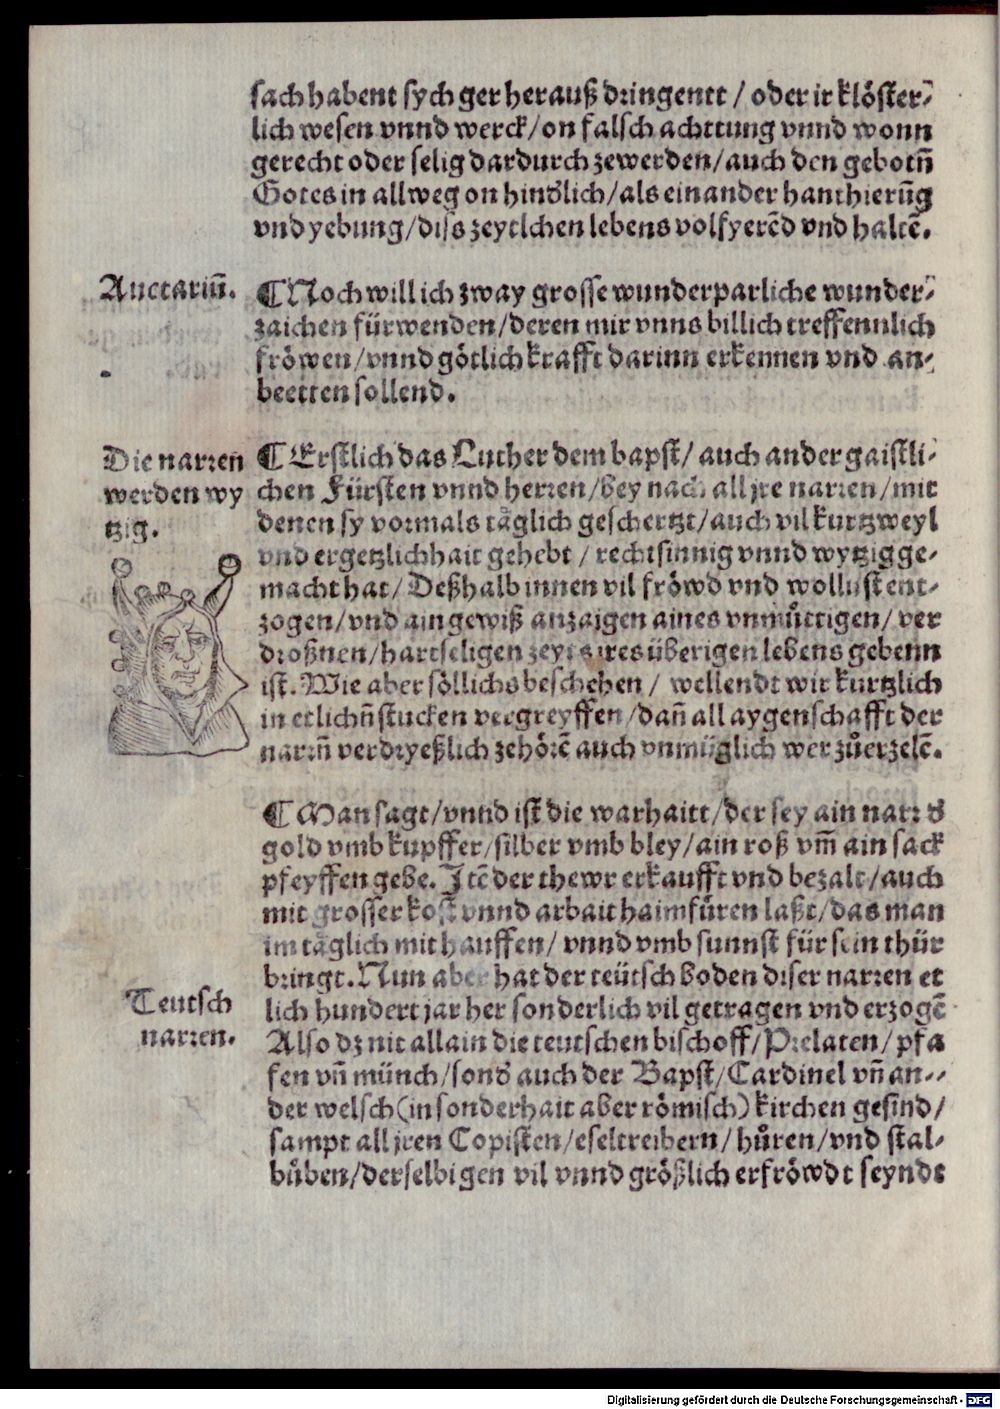 sach habent sych ger herauß dringentt / oder ir klöster⸗
lich wesen vnnd werck/on falsch achttung vnnd wonn
gerecht oder selig dardurch zewerden/auch den gebotñ
Gotes in allweg on hindlich/als ein ander hanthierūg
vnd yebung/diss zeytlchen lebens volfyerēd vnd haltē.
Auctariū.
¶ Noch will ich zway grosse wunderparliche wunder⸗
zaichen fürwenden/deren mir vnns billich treffennlich
fröwen/vnnd götlich krafft darinn erkennen vnd an⸗
beetten sollend.
Die narren
werden wy
tzig.
¶ Erstlich das Luther dem bapst/ auch ander gaistli⸗
chen Fürsten vnnd herren/bey nach all jre narren/mit
denen sy vormals täglich geschertzt/auch vil kurtzweyl
vnd ergetzlichhait gehebt / rechtsinnig vnnd wytzig ge⸗
macht hat/ Deßhalb innen vil fröwd vnd wollust ent⸗
zogen/vnd ain gewiß anzaigen aines vnmůttigen/ ver
droßnen/hartseligen zeyts ires überigen lebens gebenn
ist. Wie aber söllichs beschehen / wellendt wir kurtzlich
in etlichñ stucken vergreyffen/dañ all aygenschafft der
narrñ verdryeßlich zehörē auch vnmüglich wer zůerzelē.
¶ Man sagt/vnnd ist die warhaitt/der sey ain narr d
gold vmb kupffer/silber vmb bley/ain roß vm̄ ain sack
pfeyffen gebe. Itē der thewr erkaufft vnd bezalt/auch
mit grosser kost vnnd arbait haimfüren laßt/das man
im täglich mit hauffen/ vnnd vmb sunnst für sein thür
bringt. Nun aber hat der teütsch boden diser narren et
lich hundert jar her sonderlich vil getragen vnd erzogē
Teutsch
narren.
Also dz nit allain die teutschen bischoff/Prelaten/ pfa
fen vñ münch/sond auch der Bapst/Cardinel vñ an⸗
der welsch(in sonderhait aber römisch)kirchen gesind/
sampt all jren Copisten/eseltreibern/ hůren/vnd stal⸗
bůben/derselbigen vil vnnd größlich erfröwdt seyndt
Digitalisierung gefördert durch die Deutsche Forschungsgemeinschaft - DFG